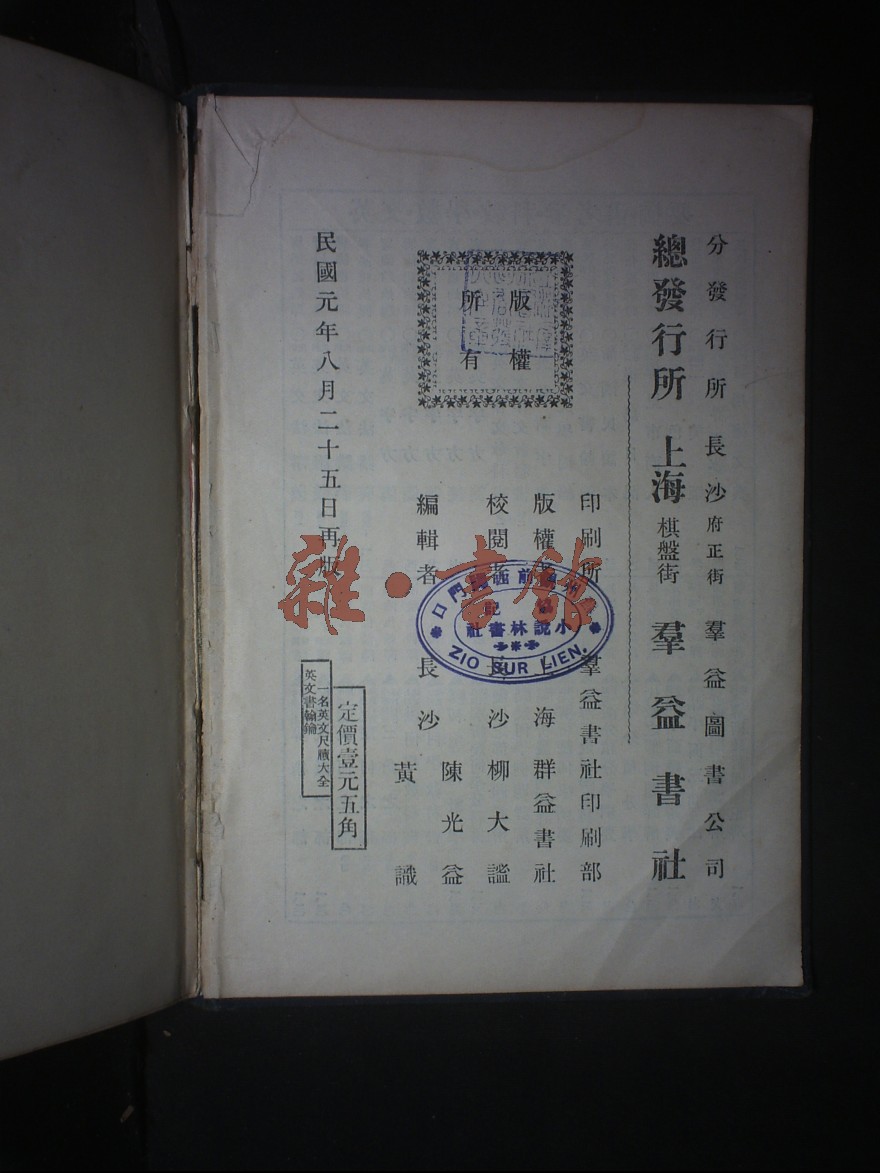 分發行所 長沙府正街 羣益圖書公司
總發行所 上海棋盤街 羣益書社
印刷所 羣益書社印刷部
版權者 上海群益書社
校閱者 長沙柳大謐
編輯者 長沙 陳光益
黃識
版權
所有
定價壹元五角
一名英文尺牘大全
英文書翰鑰
民國元年八月二十五日再版
小說林書社
ZIO SUR LIEN.
雜·書館